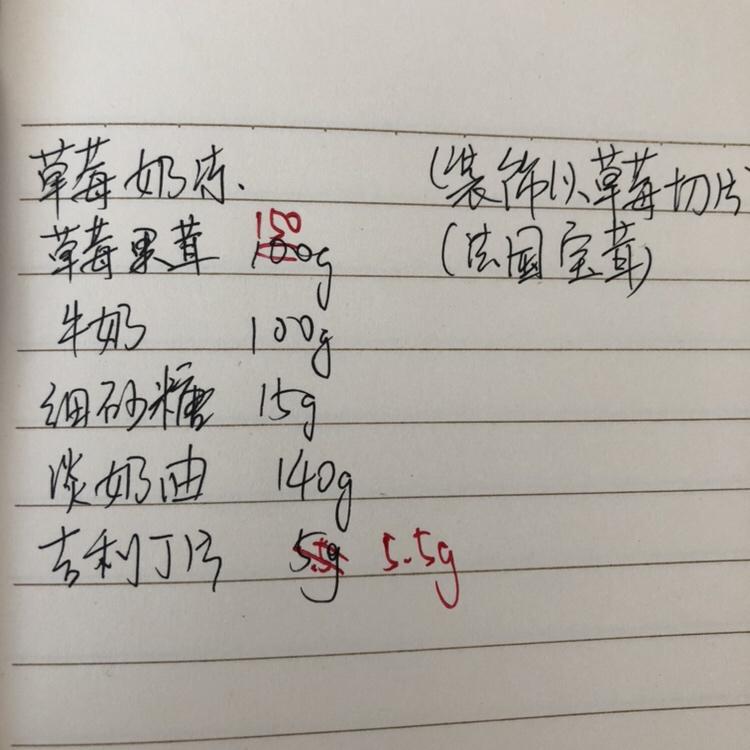 草莓奶冻. (装饰以草莓切片)
草莓果茸 150 100g (法国宝茸)
牛奶 100g
细砂糖 15g
淡奶油 140g
吉利丁片 5g 5.5g